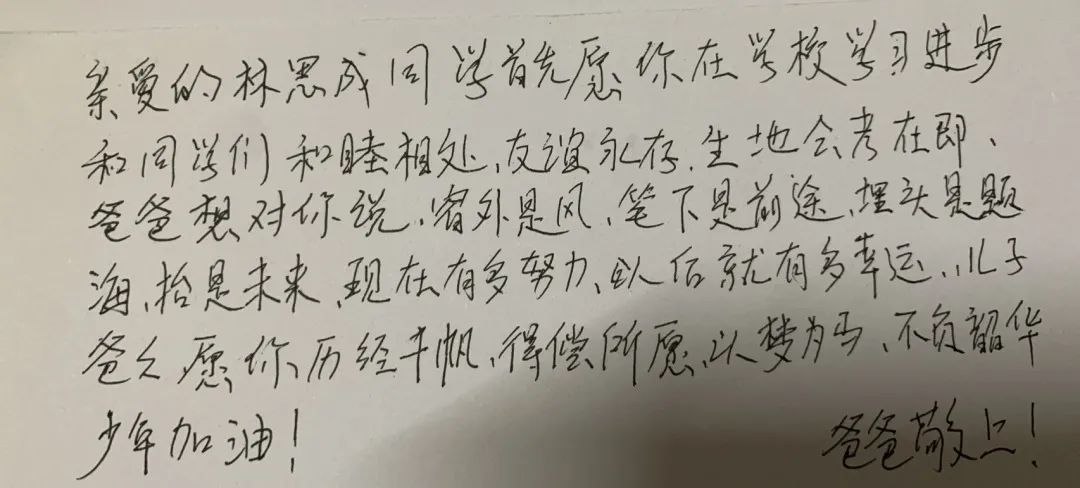 亲爱的林思成同学首先愿你在学校学习进步
和同学们和睦相处、友谊永存.生地会考在即、
爸爸想对你说、窗外是风、笔下是前途、埋头是题
海、抬是未来、现在有多努力、以后就有多幸运、儿子
爸爸愿你历经千帆、得偿所愿、以梦为马、不负韶华
少年加油!
爸爸敬上!